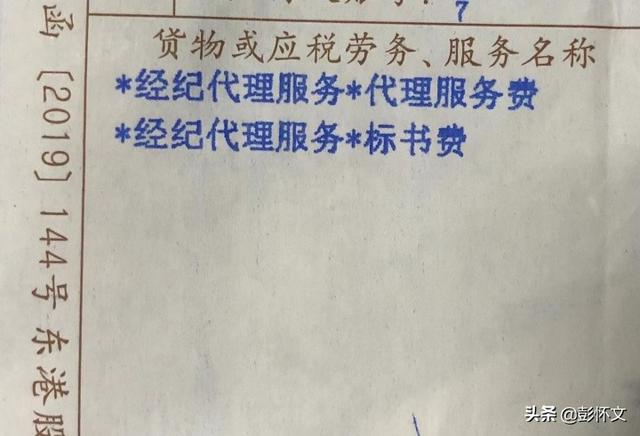 7
货物或应税劳务、服务名称
*经纪代理服务*代理服务费
*经纪代理服务*标书费
函〔2019〕144号东港股
头条 @彭怀文